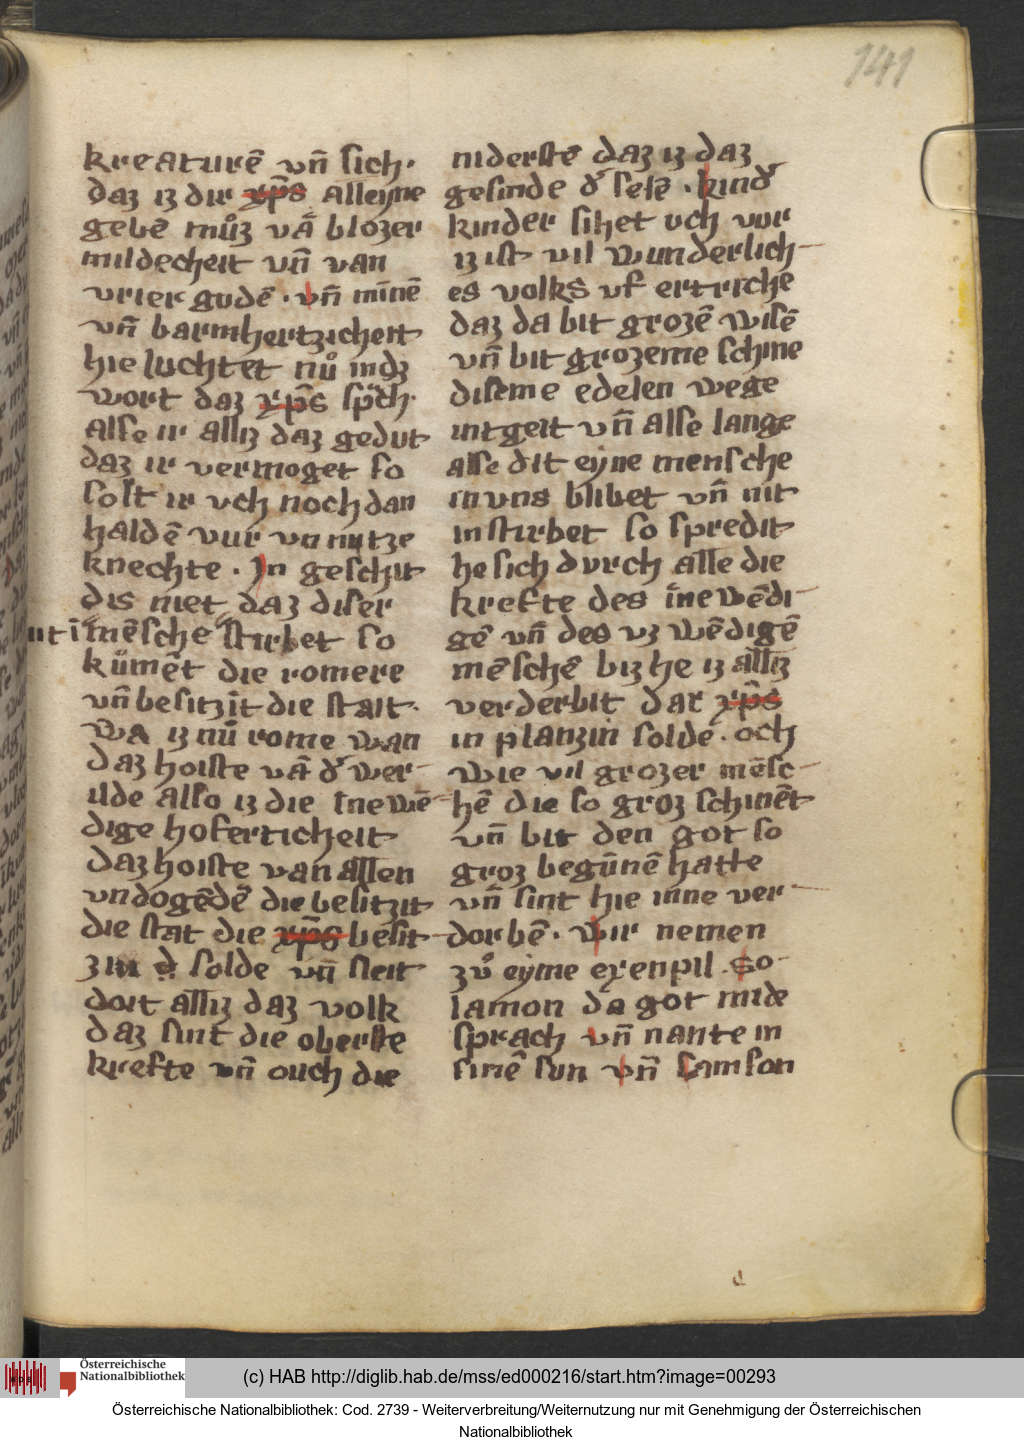 141
kreaturē vn̄ sich·
daz iz dir xp̄s alleyne
gebē můz vā blozer
mildecheit vn̄ van
vrier gudē · vn̄ minē
vn̄ barmhertzicheit
hie luchtet nů in dz
wort daz xp̄s sp̄ch·
alse ir alliz daz gedut
daz ir vermoget so
solt ir vch noch dan
haldē vur vnnutze
knechte · In geschit
dis niet daz diser
mēsche stirbet so
kůmēt die romere
vn̄ besitzīt die stait·
wa iz nů rome wan
daz hoiste vā d' wer
ilde also iz die īnewē
dige hoferticheit
daz hoiste van allen
vndogēdē die besitzit
die stat die xp̄s besit
zin solde vn̄ sleit
doit alliz daz volk
daz sint die oberste
krefte vn̄ ouch die
niderstē daz iz daz
gesinde d' selē · kind'
kinder sihet vch vor
iz ist vil wunderlich
es volks vf ertriche
daz da bit grozē wisē
vn̄ bit grozeme schine
diseme edelen wege
intgeit vn̄ alse lange
alse dit eyne mensche
in vns blibet vn̄ nit
instirbet so spredit
he sich durch alle die
krefte des īnewēdi
gē vn̄ des vzwēdigē
mēschē biz he iz alliz
verderbit dar xp̄s
in planzin solde · och
wie vil grozer mēsc
hē die so groz schinēt
vn̄ bit den got so
groz begūnē hatte
vn̄ sint hie inne ver
dorbē · wir nemen
zů eyme exenpil · So
lamon da got mide
sprach vn̄ nante in
sinē sun vn̄ Samson
Österreichische
Nationalbibliothek
(c) HAB http://diglib.hab.de/mss/ed000216/start.htm?image=00293
Österreichische Nationalbibliothek: Cod. 2739 - Weiterverbreitung/Weiternutzung nur mit Genehmigung der Österreichischen
Nationalbibliothek